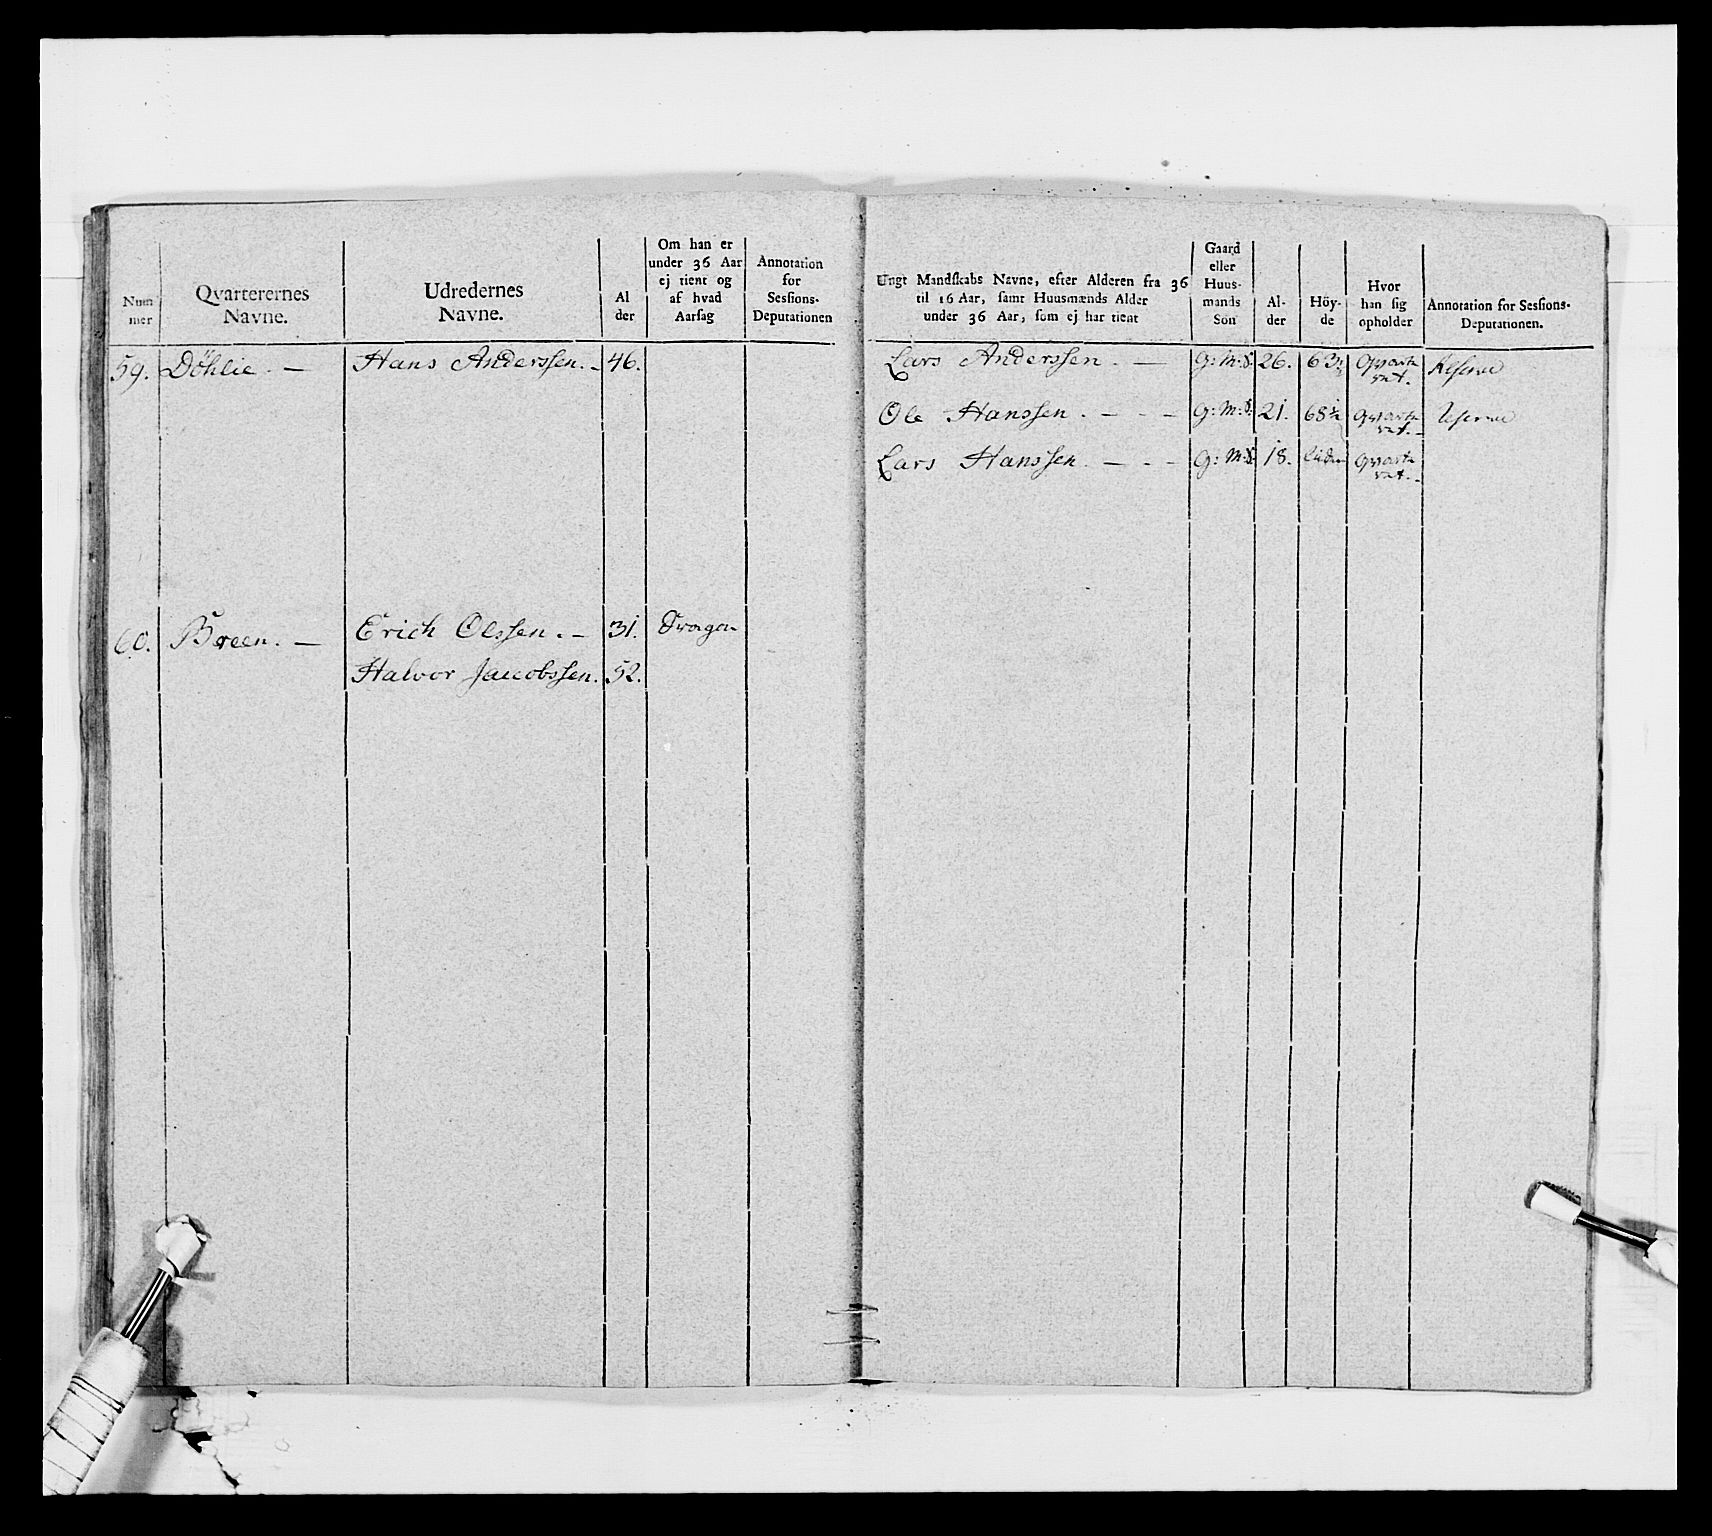 Num
mer
Qvarterernes
Navne.
Udredernes
Navne.
Al
der
Om han er
under 36 Aar
ej tient og
af hvad
Aarsag
Annotation
for
Sessions-
Deputationen
59. Döhlie. — Hans Anderssen. - 46.
60. Breen. — Erich Olssen. - 31. Dragon
Halvor Jacobssen. 52.
Ungt Mandskabs Navne, efter Alderen fra 36
til 16 Aar, samt Huusmænds Alder
under 36 Aar, som ej har tient
Gaard
eller
Huus-
mands
Sön
Al-
der
Höy-
de
Hvor
han sig
opholder
Annotation for Sessions-
Deputationen.
Lars Anderssen. — G:M:S. 26. 63 Qvarte
ret. Reserve
Ole Hanssen. - - - G:M:S. 21. 68½ Qvarte
ret. Reserve
Lars Hanssen. - - - G:M:S. 18. liden Qvarte
ret.